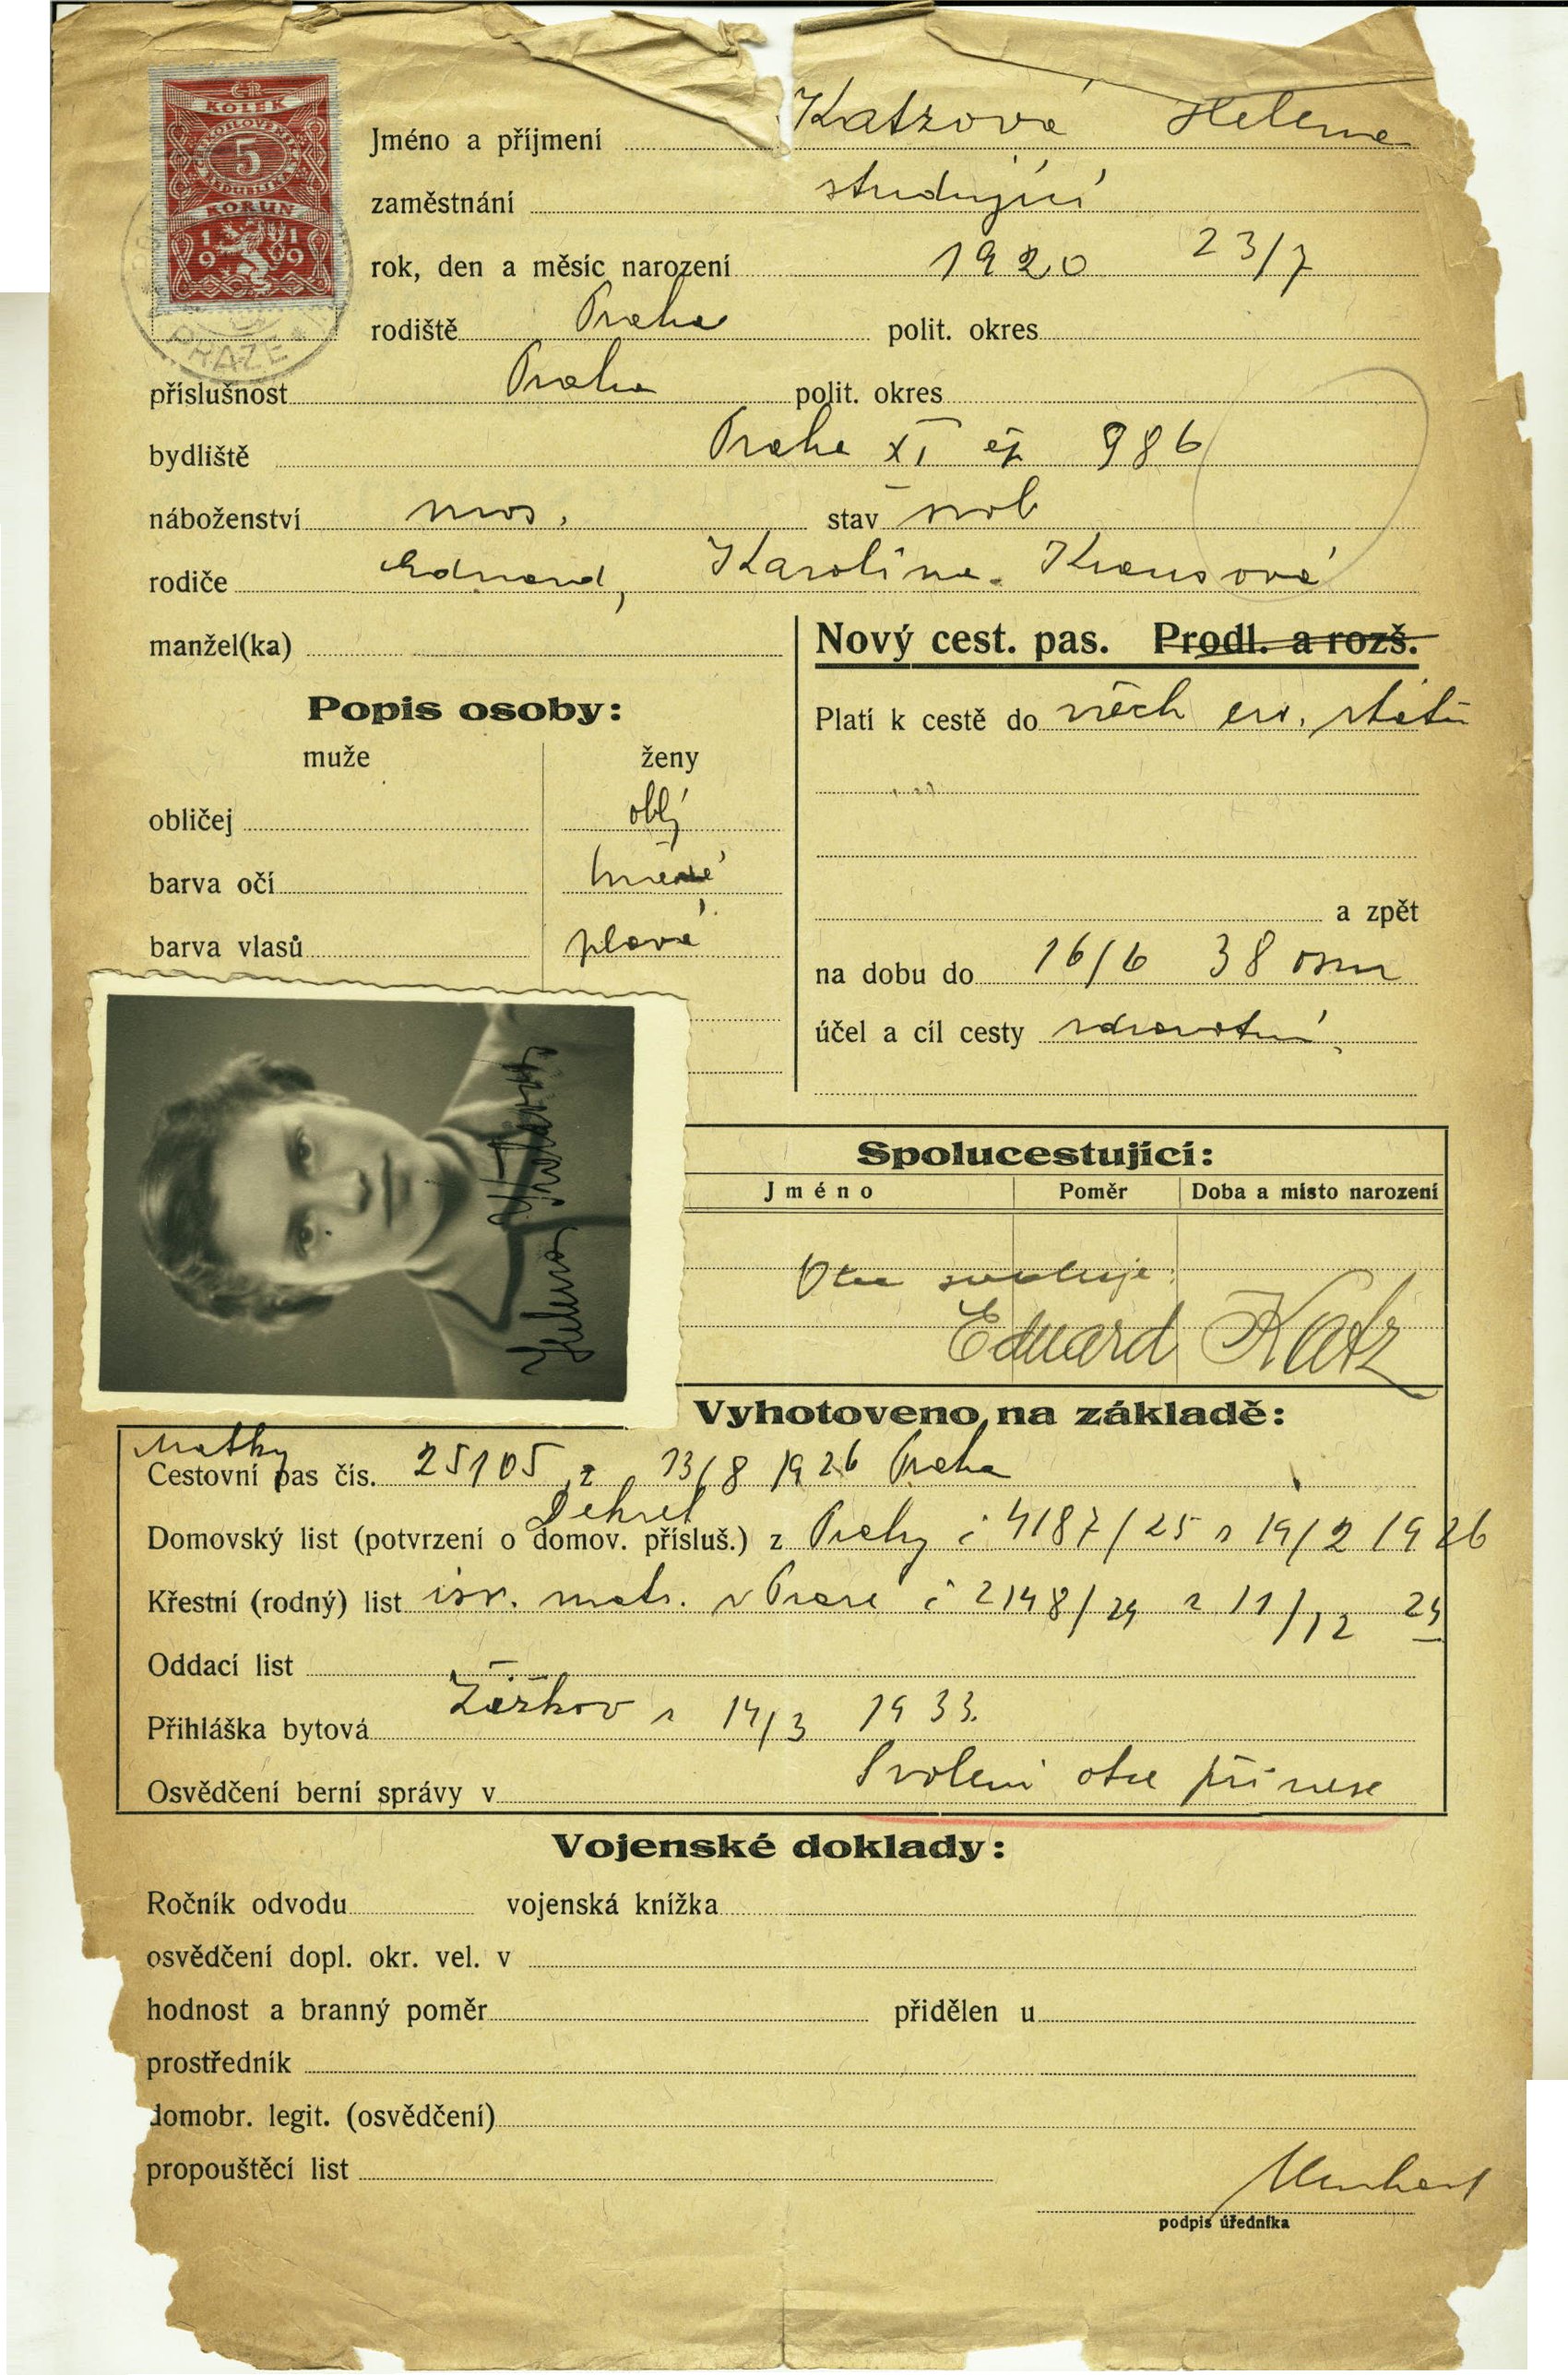 ČR
KOLEK
ČESKOSLOVENSKÁ
5
REPUBLIKA
KORUN
1919
PRAZE
Jméno a příjmení Katzová Helena
zaměstnání studující
rok, den a měsíc narození 1920 23/7
rodiště Praha polit. okres
příslušnost Praha polit. okres
bydliště Praha XI čp 986
náboženství mos. stav svob
rodiče Eduard, Karolina Krausová
manžel(ka)
Nový cest. pas. Prodl. a rozš.
Popis osoby:
muže ženy
obličej oblý
barva očí hnědé
barva vlasů plavá
Platí k cestě do všech ev. států
a zpět
na dobu do 16/6 38 osm
účel a cíl cesty zdravotní
Helena Katzová
Spolucestující:
Jméno Poměr Doba a místo narození
Otec svoluje:
Eduard Katz
Vyhotoveno na základě:
Matky
Cestovní pas čís. 25105 z 13/8 1926 Praha
Dekret
Domovský list (potvrzení o domov. přísluš.) z Prahy č 4187/25 z 19/2 1926
Křestní (rodný) list isr. matr. v Praze č 2148/24 z 11/12 24
Oddací list
Přihláška bytová Žižkov z 14/3 1933.
Osvědčení berní správy v Svolení otce přinese
Vojenské doklady:
Ročník odvodu vojenská knížka
osvědčení dopl. okr. vel. v
hodnost a branný poměr přidělen u
prostředník
domobr. legit. (osvědčení)
propouštěcí list
podpis úředníka